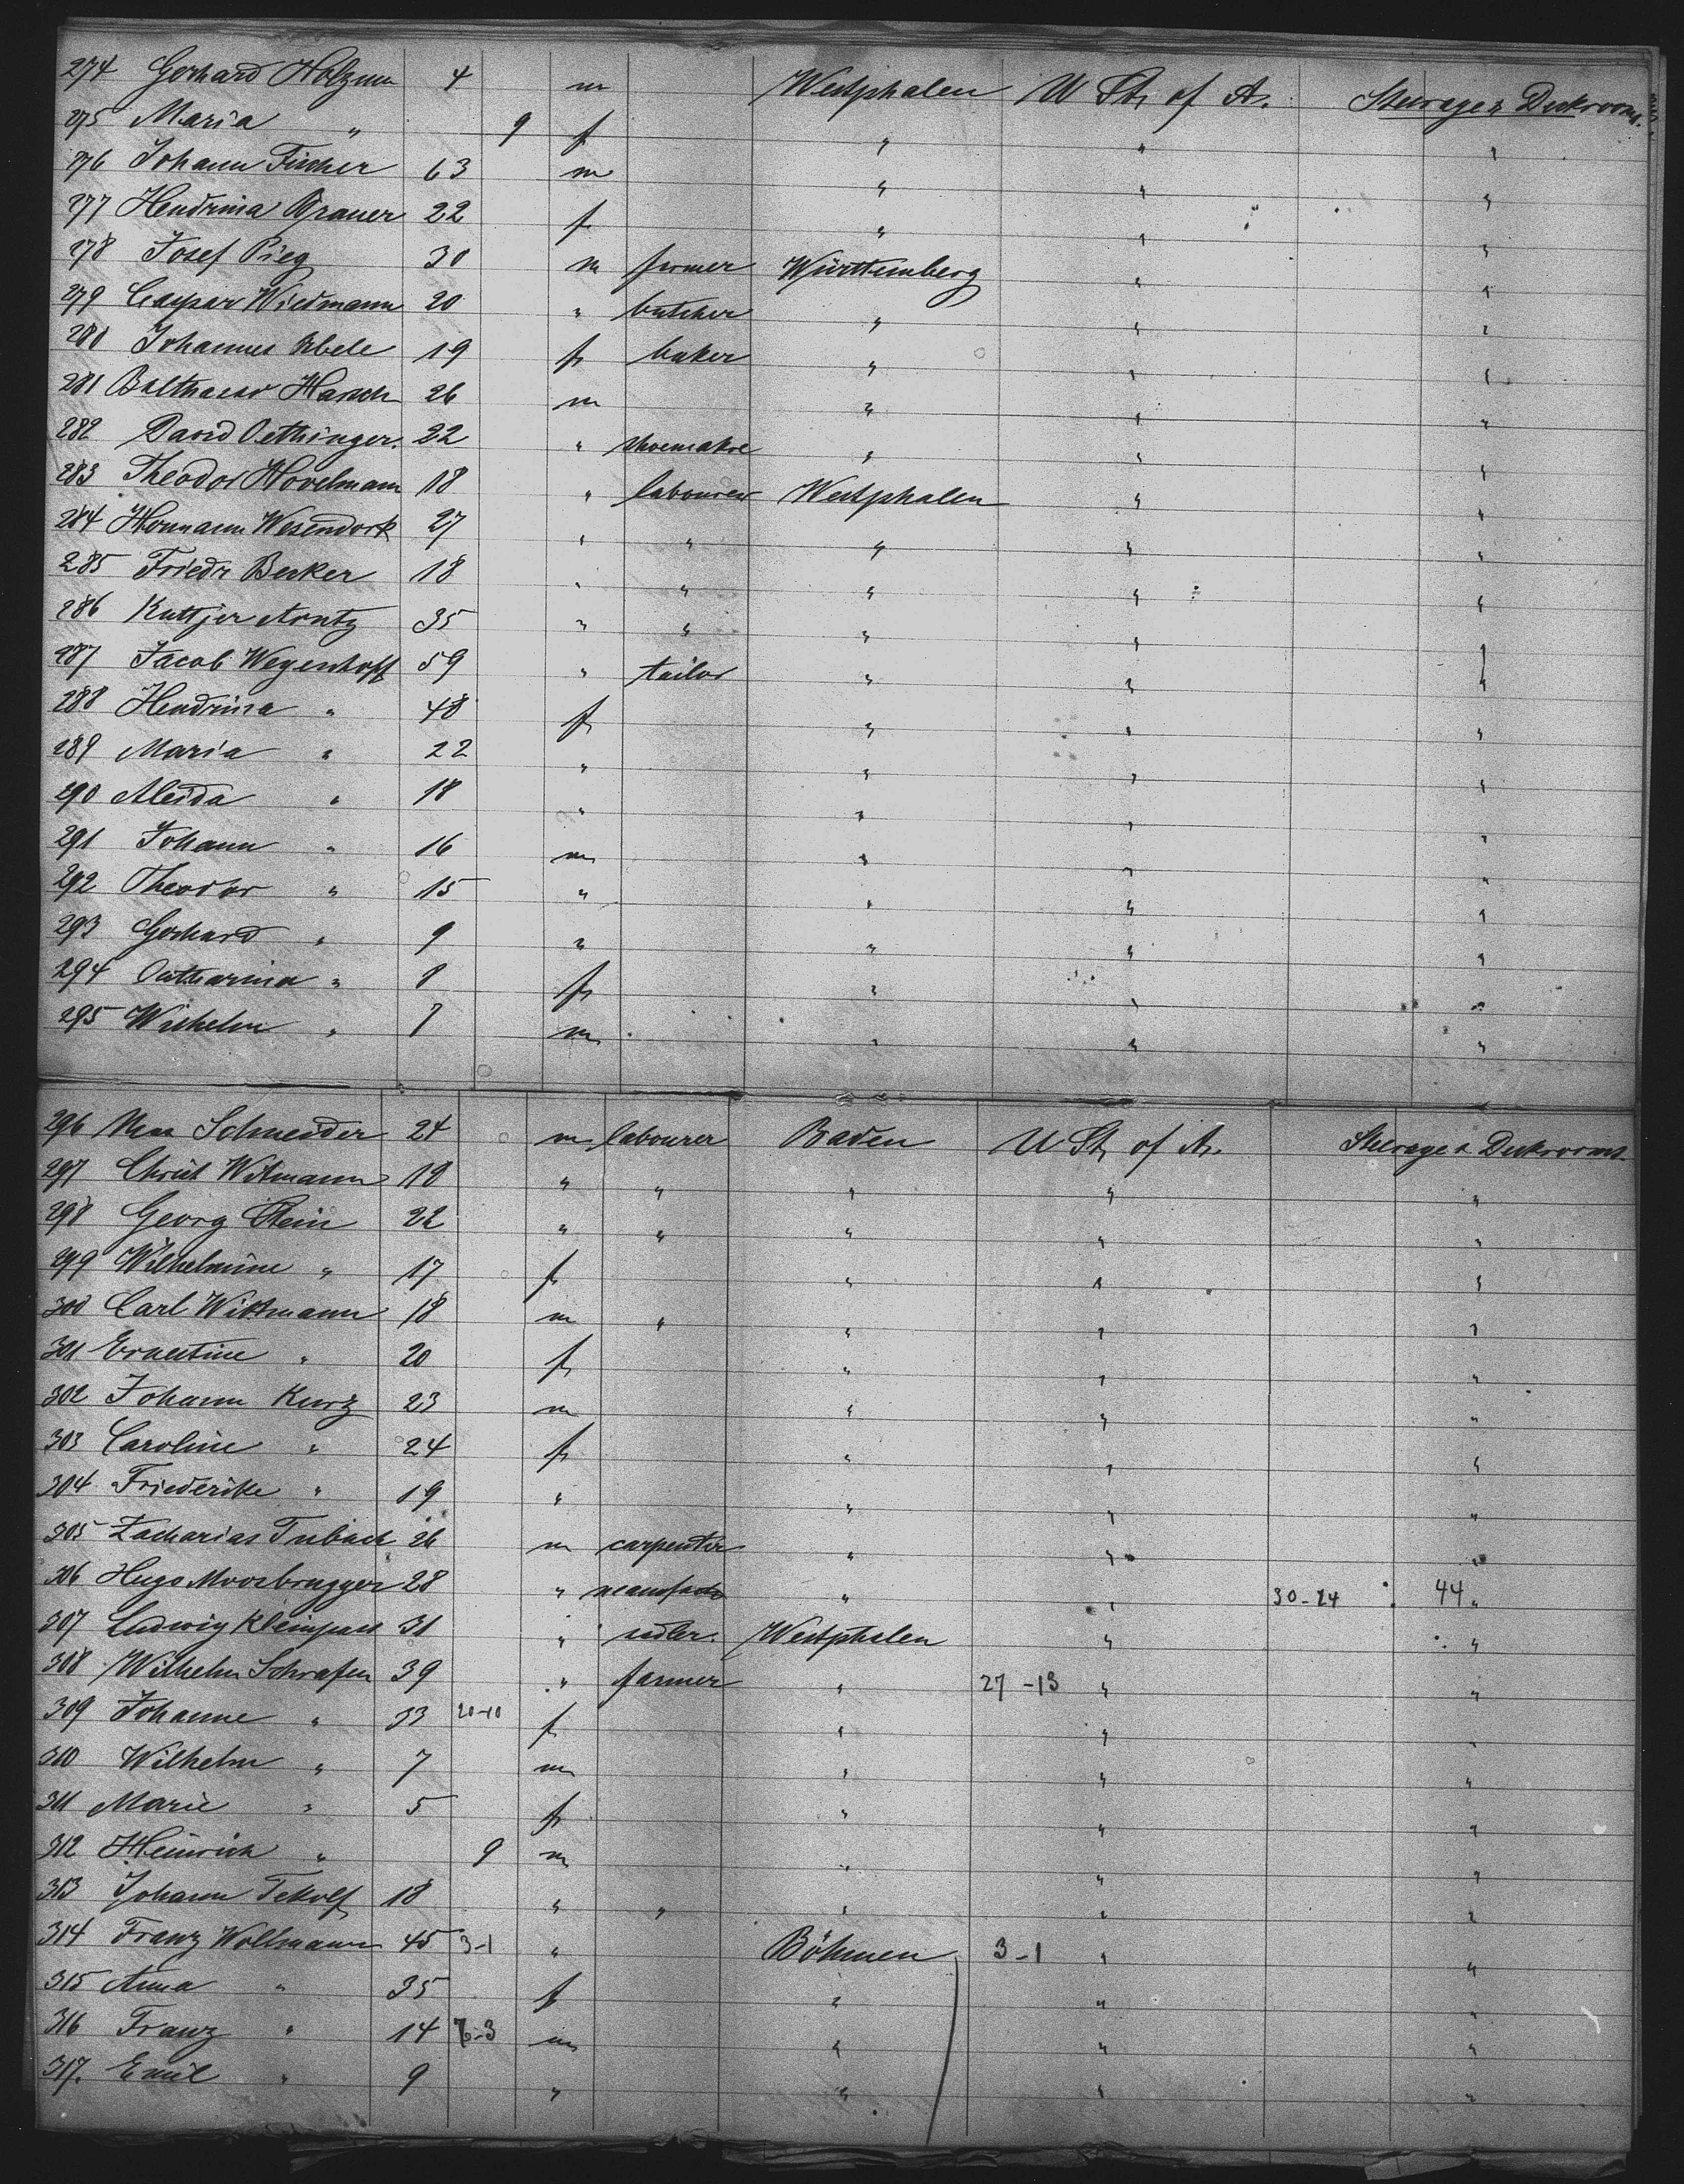 274 Gerhard Holzum 4 m Westphalen U St, of A. Steerage & Deckrooms.
275 Maria " 9 f " " "
276 Johann Fischer 63 m " " "
277 Hendrina Brauer 22 f " " "
278 Josef Pieg 30 m farmer Württemberg " "
279 Caspar Wiedmann 20 " butcher " " "
280 Johannes Abele 19 f baker " " "
281 Balthasar Harsch 26 m " " "
282 David Oethinger. 22 " shoemakre " " "
283 Theodor Hovelmann 18 " labourer Westphalen " "
284 Hermann Wesendork 27 " " " " "
285 Friedr Becker 18 " " " " "
286 Kuttjer Arntz 35 " " " " "
287 Jacob Wegenhoff 59 " tailor " " "
288 Hendrina " 48 f " " "
289 Maria " 22 " " " "
290 Aleida " 18 " " " "
291 Johann " 16 m " " "
292 Theodor " 15 " " " "
293 Gerhard " 9 " " " "
294 Catharina " 8 f " " "
295 Wilhelm " 7 m " " "
296 Max Schneider 24 m labourer Baden U St, of A. Steerage & Deckrooms.
297 Christ Witmann 18 " " " " "
298 Georg Stein 22 " " " " "
299 Wilhelmine " 17 f " " "
300 Carl Wittmann 18 m " " " "
301 Ernestine " 20 f " " "
302 Johann Kurz 23 m " " "
303 Caroline " 24 f " " "
304 Friederike " 19 " " " "
305 Zacharias Tubach 26 m carpenter " " "
306 Hugo Moosbrugger 28 " " " 30-24 44 "
307 Ludwig Kleinpass 31 " sadler. Westphalen " "
308 Wilhelm Schrafen 39 " farmer " 27-13 " "
309 Johanne " 33 20-10 f " " "
310 Wilhelm " 7 m " " "
311 Marie " 5 f " " "
312 Heinrich " 9 m " " "
313 Johann Tekolf 18 " " " " "
314 Franz Wollmann 45 3-1 " Böhmen 3-1 " "
315 Anna " 35 f " " "
316 Franz " 14 7-3 m " " "
317. Emil " 9 " " " "